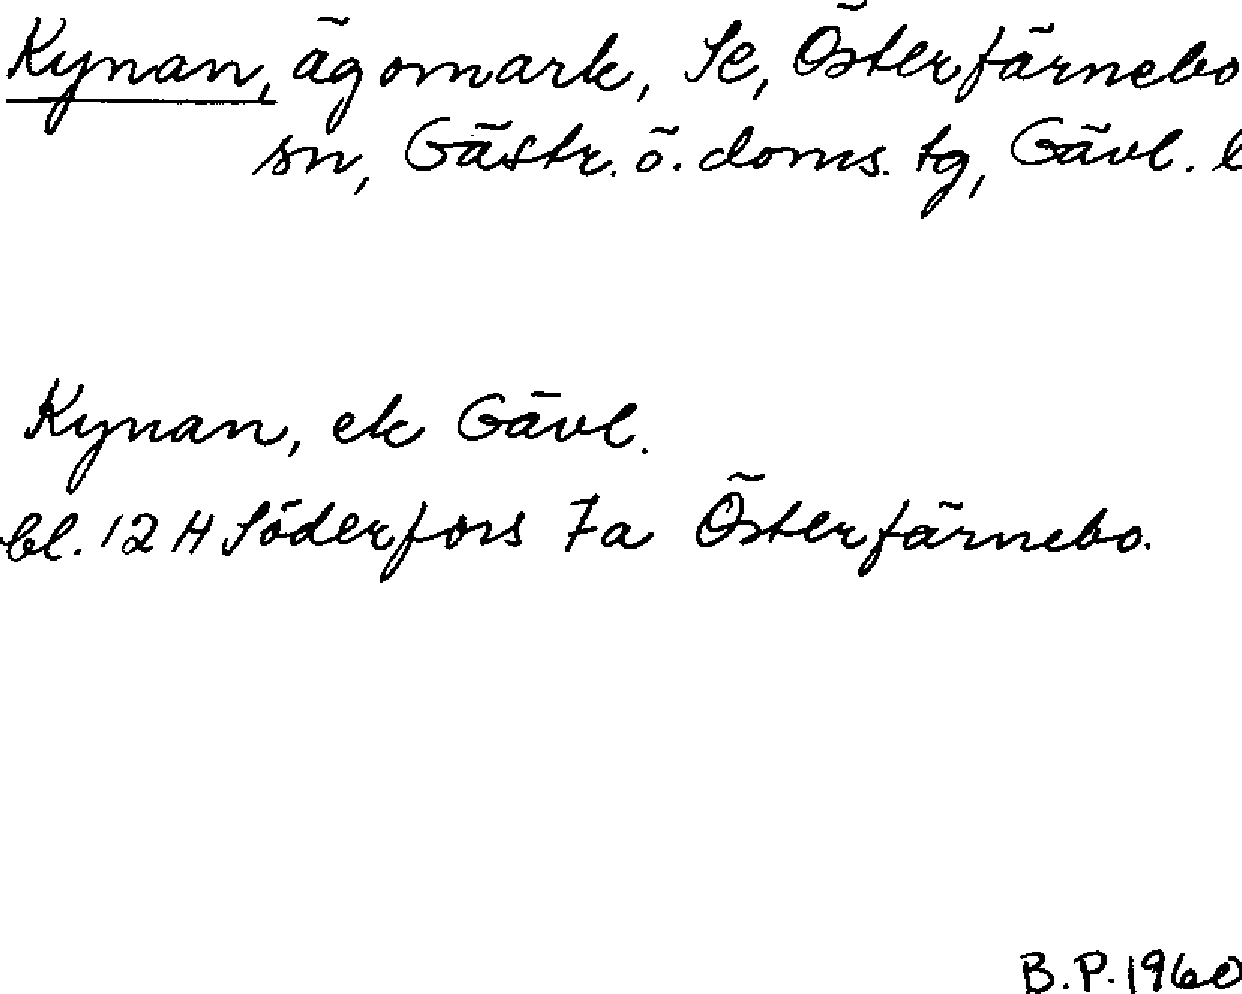 Kynan, ägomark, Se, Österfärnebo
sn, Gästr. ö. doms. tg, Gävl. l
Kynan, ek Gävl.
bl. 12 H Söderfors 7a Österfärnebo.
B.P. 1960